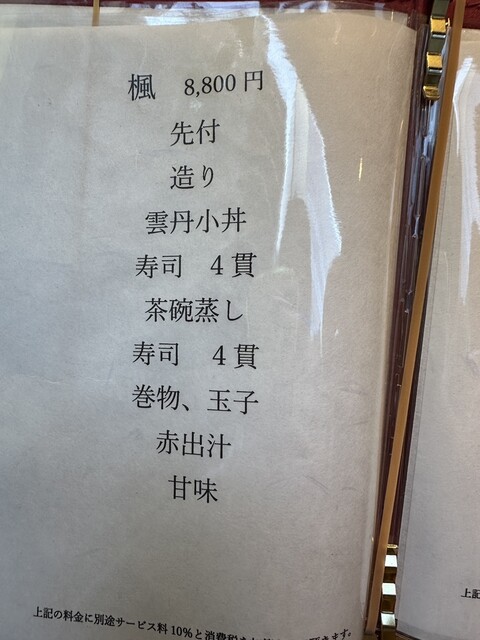 楓　8,800円
先付
造り
雲丹小丼
寿司　4貫
茶碗蒸し
寿司　4貫
巻物、玉子
赤出汁
甘味
上記の料金に別途サービス料10%と消費税を
上記